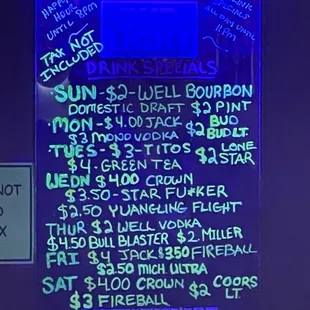 HAPPY
HOUR
UNTIL 8PM
TAX NOT
INCLUDED
DRINK
SPECIALS
ALL DAY UNTIL
11PM
DRINK SPECIALS
SUN - $2 - WELL BOURBON
DOMESTIC DRAFT $2 PINT
MON - $4.00 JACK $2 BUD
BUD LT.
$3 MONO VODKA
TUES - $3 - TITOS $2 LONE
STAR
$4 - GREEN TEA
WEDN $4.00 CROWN
$3.50 - STAR FU*KER
$2.50 YUANGLING FLIGHT
THUR $2 WELL VODKA
$4.50 BULL BLASTER $2 MILLER
FRI $4 JACK $3.50 FIREBALL
$2.50 MICH ULTRA
SAT $4.00 CROWN $2 COORS
LT.
$3 FIREBALL
NOT